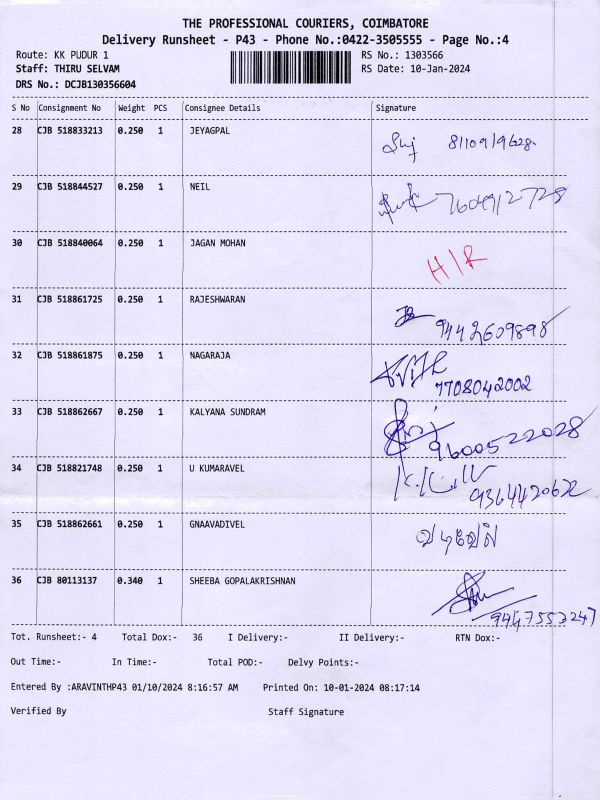 THE PROFESSIONAL COURIERS, COIMBATORE
Delivery Runsheet - P43 - Phone No.:0422-3505555 - Page No.:4
Route: KK PUDUR 1 RS No.: 1303566
Staff: THIRU SELVAM RS Date: 10-Jan-2024
DRS No.: DCJB130356604
S No Consignment No Weight PCS Consignee Details Signature
28 CJB 518833213 0.250 1 JEYAGPAL
29 CJB 518844527 0.250 1 NEIL 7604912728
30 CJB 518840064 0.250 1 JAGAN MOHAN H/R
31 CJB 518861725 0.250 1 RAJESHWARAN 9442609898
32 CJB 518861875 0.250 1 NAGARAJA 7708042002
33 CJB 518862667 0.250 1 KALYANA SUNDRAM 9600522028
34 CJB 518821748 0.250 1 U KUMARAVEL
35 CJB 518862661 0.250 1 GNAAVADIVEL
36 CJB 80113137 0.340 1 SHEEBA GOPALAKRISHNAN
Tot. Runsheet:- 4 Total Dox:- 36 I Delivery:- II Delivery:- RTN Dox:-
Out Time:- In Time:- Total POD:- Delvy Points:-
Entered By :ARAVINTHP43 01/10/2024 8:16:57 AM Printed On: 10-01-2024 08:17:14
Verified By Staff Signature